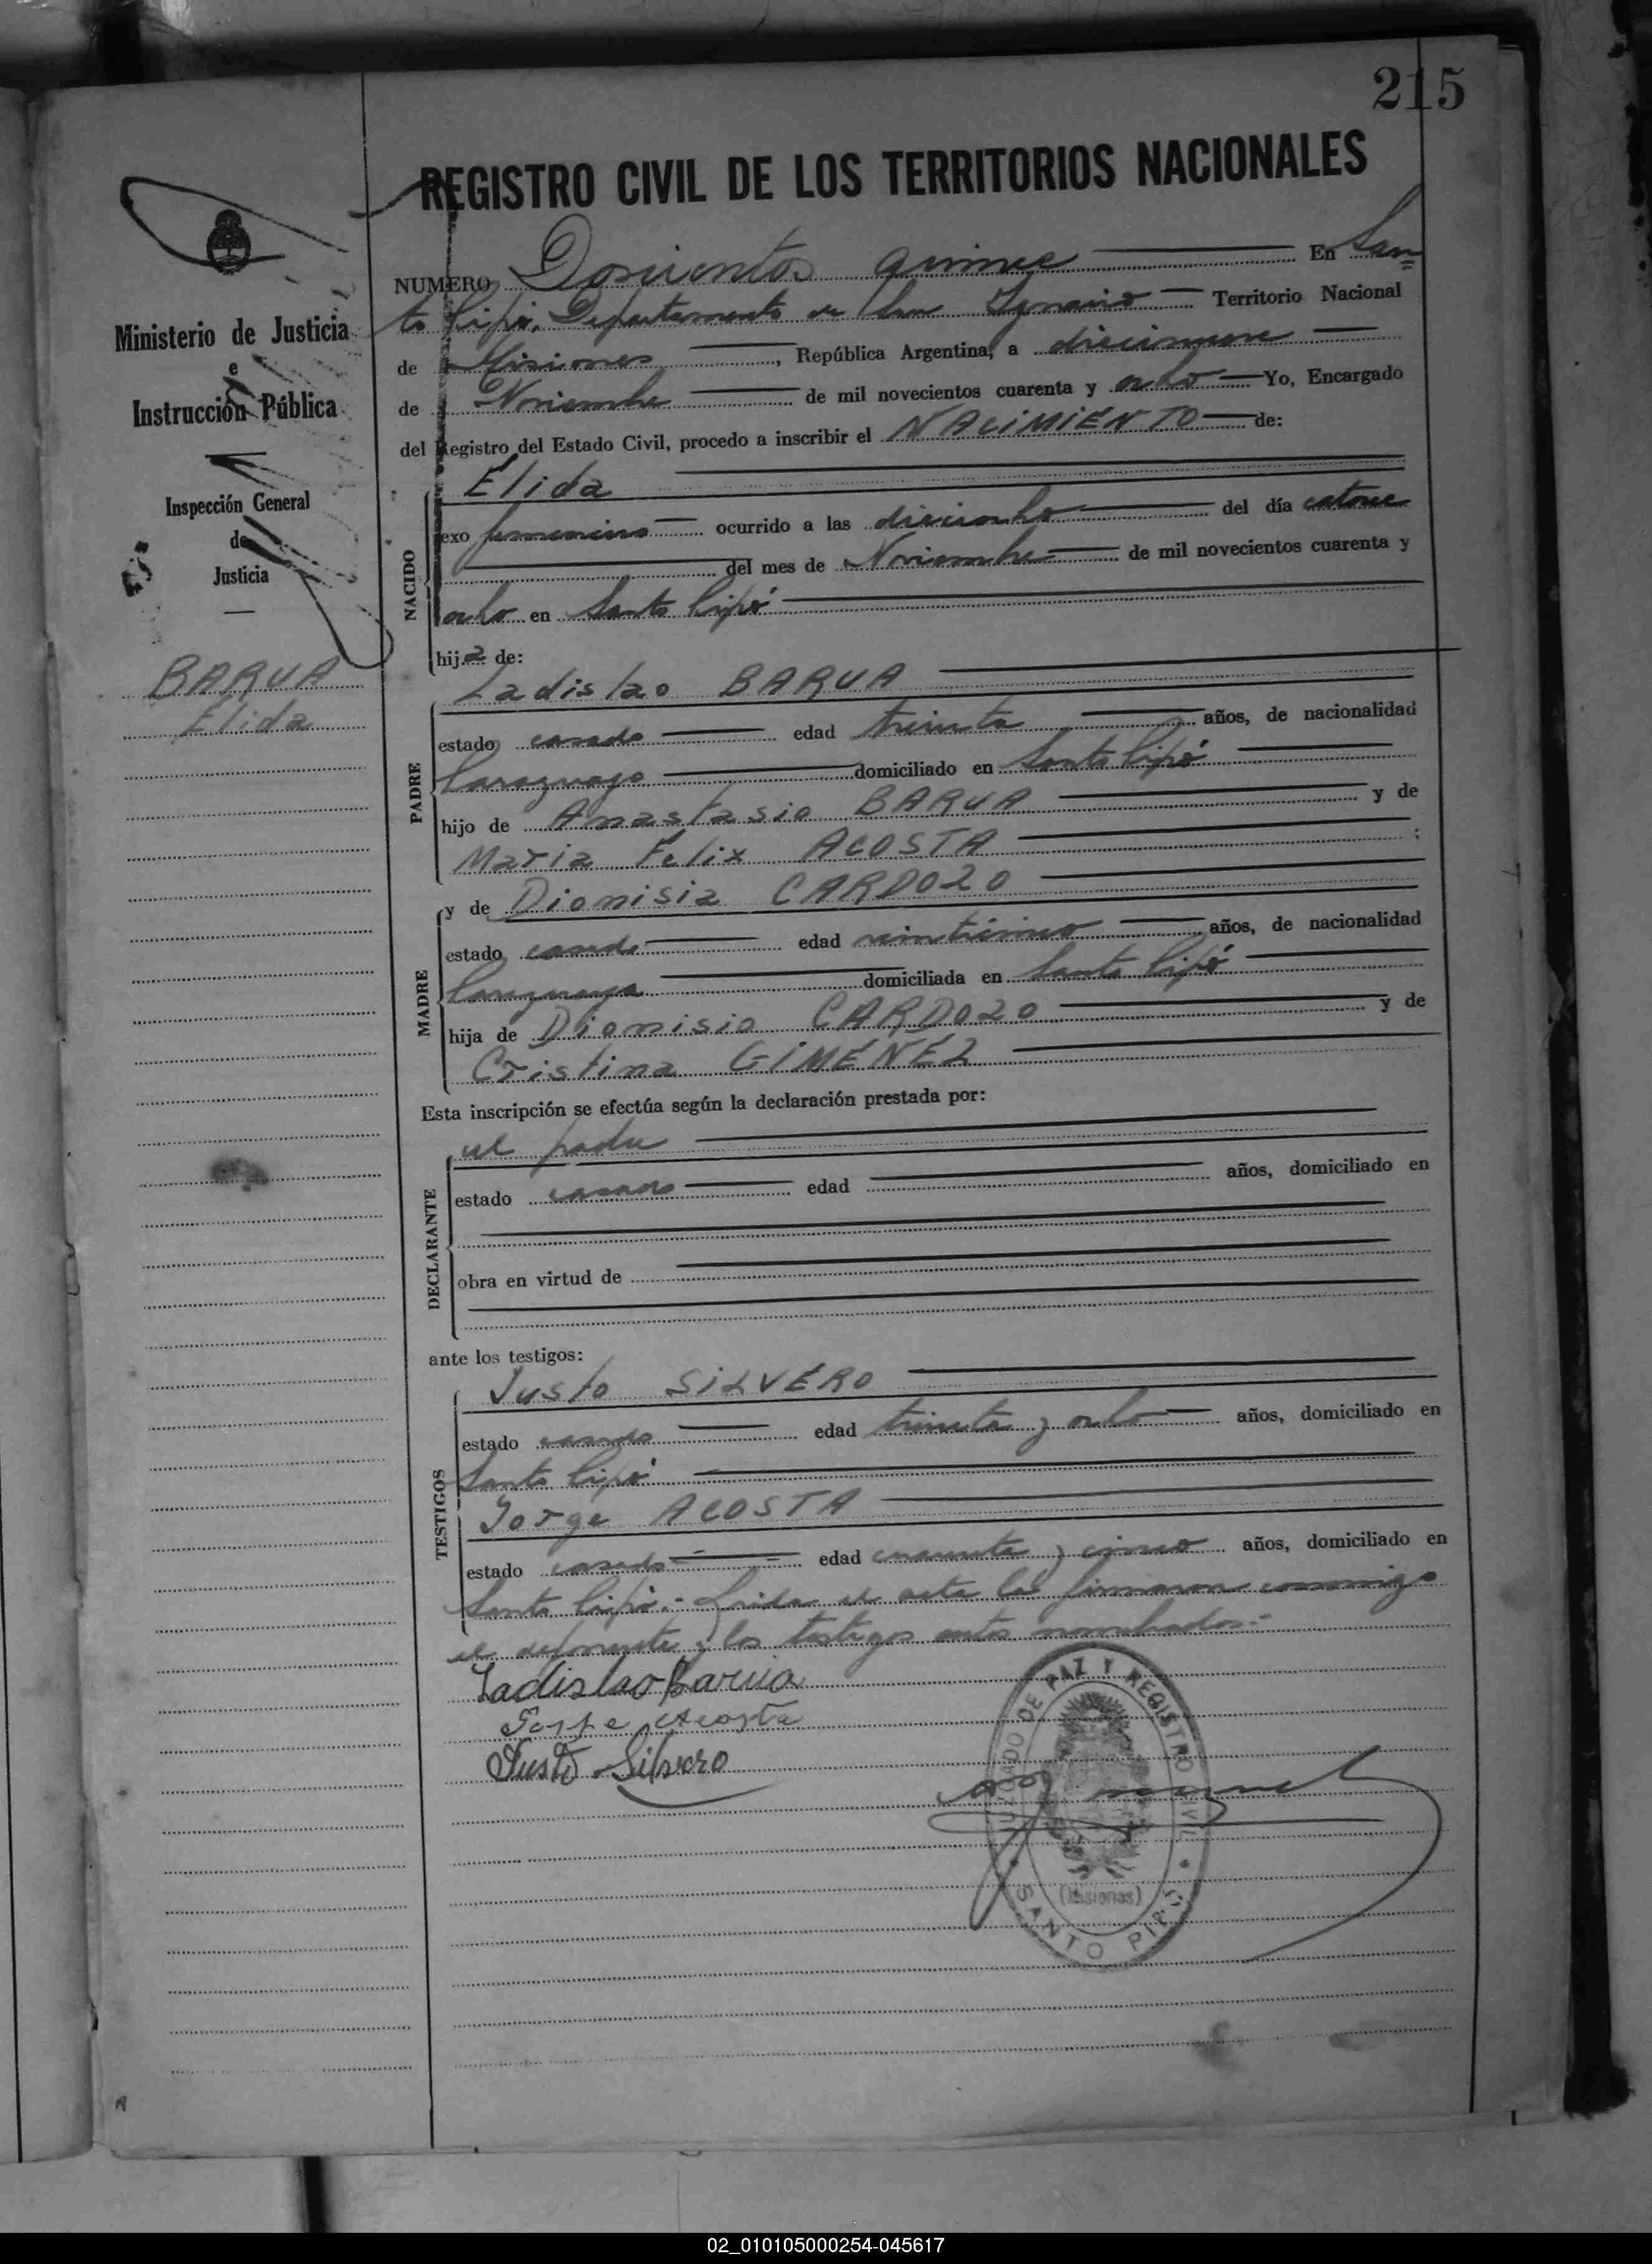 215
REGISTRO CIVIL DE LOS TERRITORIOS NACIONALES
Ministerio de Justicia
e
Instrucción Pública
Inspección General
de
Justicia
BARUA
Élida
NUMERO Doscientos quince En San
to Pipó, Departamento de San Ignacio Territorio Nacional
de Misiones, República Argentina, a diecinueve
de Noviembre de mil novecientos cuarenta y ocho Yo, Encargado
del Registro del Estado Civil, procedo a inscribir el NACIMIENTO de:
NACIDO
Élida
exo femenino ocurrido a las dieciocho del día catorce
del mes de Noviembre de mil novecientos cuarenta y
ocho en Santo Pipó
hija de:
PADRE
Ladislao BARUA
estado casado edad treinta años, de nacionalidad
Paraguayo domiciliado en Santo Pipó
hijo de Anastasio BARUA y de
Maria Felix ACOSTA ;
MADRE
y de Dionisia CARDOZO
estado casada edad veinticinco años, de nacionalidad
Paraguaya domiciliada en Santo Pipó
hija de Dionisio CARDOZO y de
Cristina GIMÉNEZ
Esta inscripción se efectúa según la declaración prestada por:
DECLARANTE
el padre
estado casado edad años, domiciliado en
obra en virtud de
ante los testigos:
TESTIGOS
Justo SILVERO
estado casado edad treinta y ocho años, domiciliado en
Santo Pipó
Jorge ACOSTA
estado casado edad cuarenta y cinco años, domiciliado en
Santo Pipó.- Leída el acta la firmaron conmigo
el deponente y los testigos antes nombrados.-
Ladislao Barua
Jorge Acosta
Justo Silvero
JUZGADO DE PAZ Y REGISTRO CIVIL
(Misiones)
SANTO PIPÓ
02_010105000254-045617